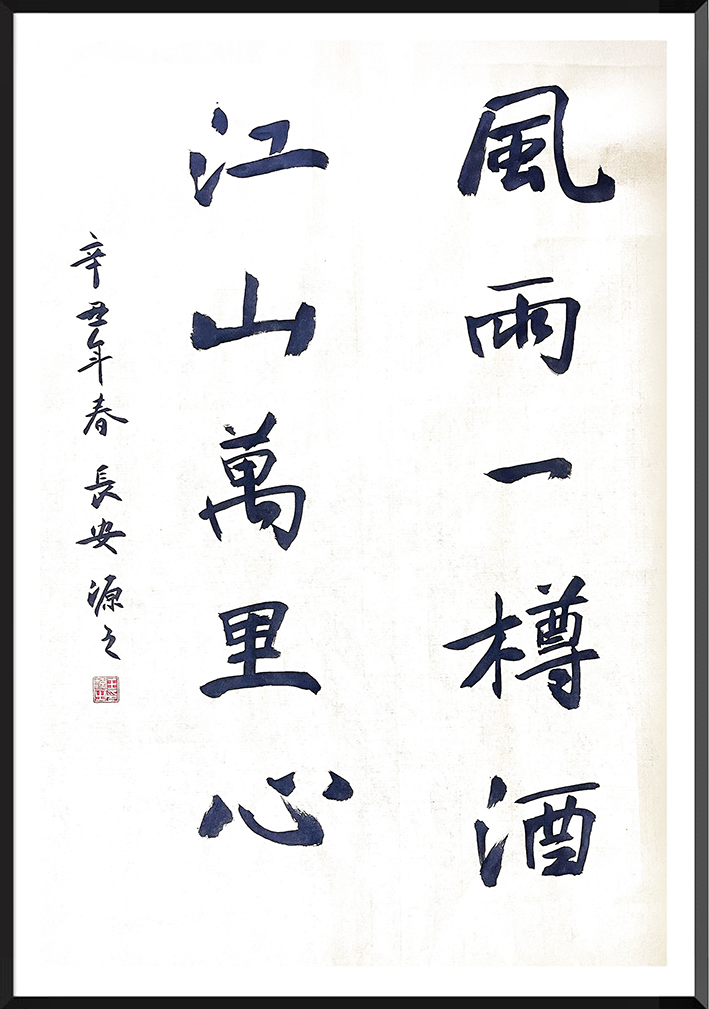 風雨一樽酒
江山萬里心
辛丑年春 長安 源之